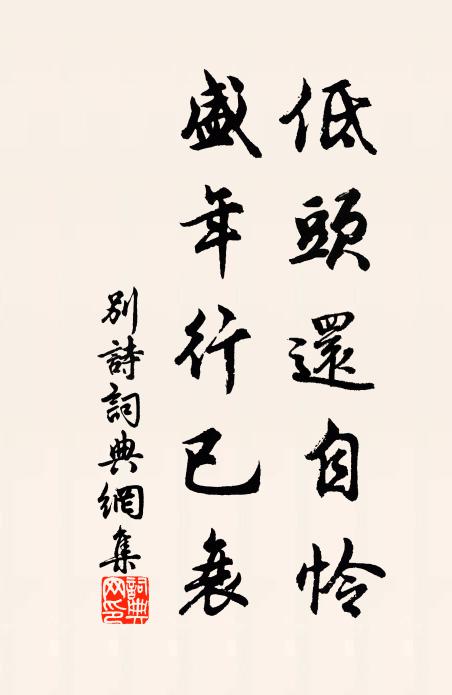 低頭還自怜
盛年行已衰
別詩詞典網集
詞典网印